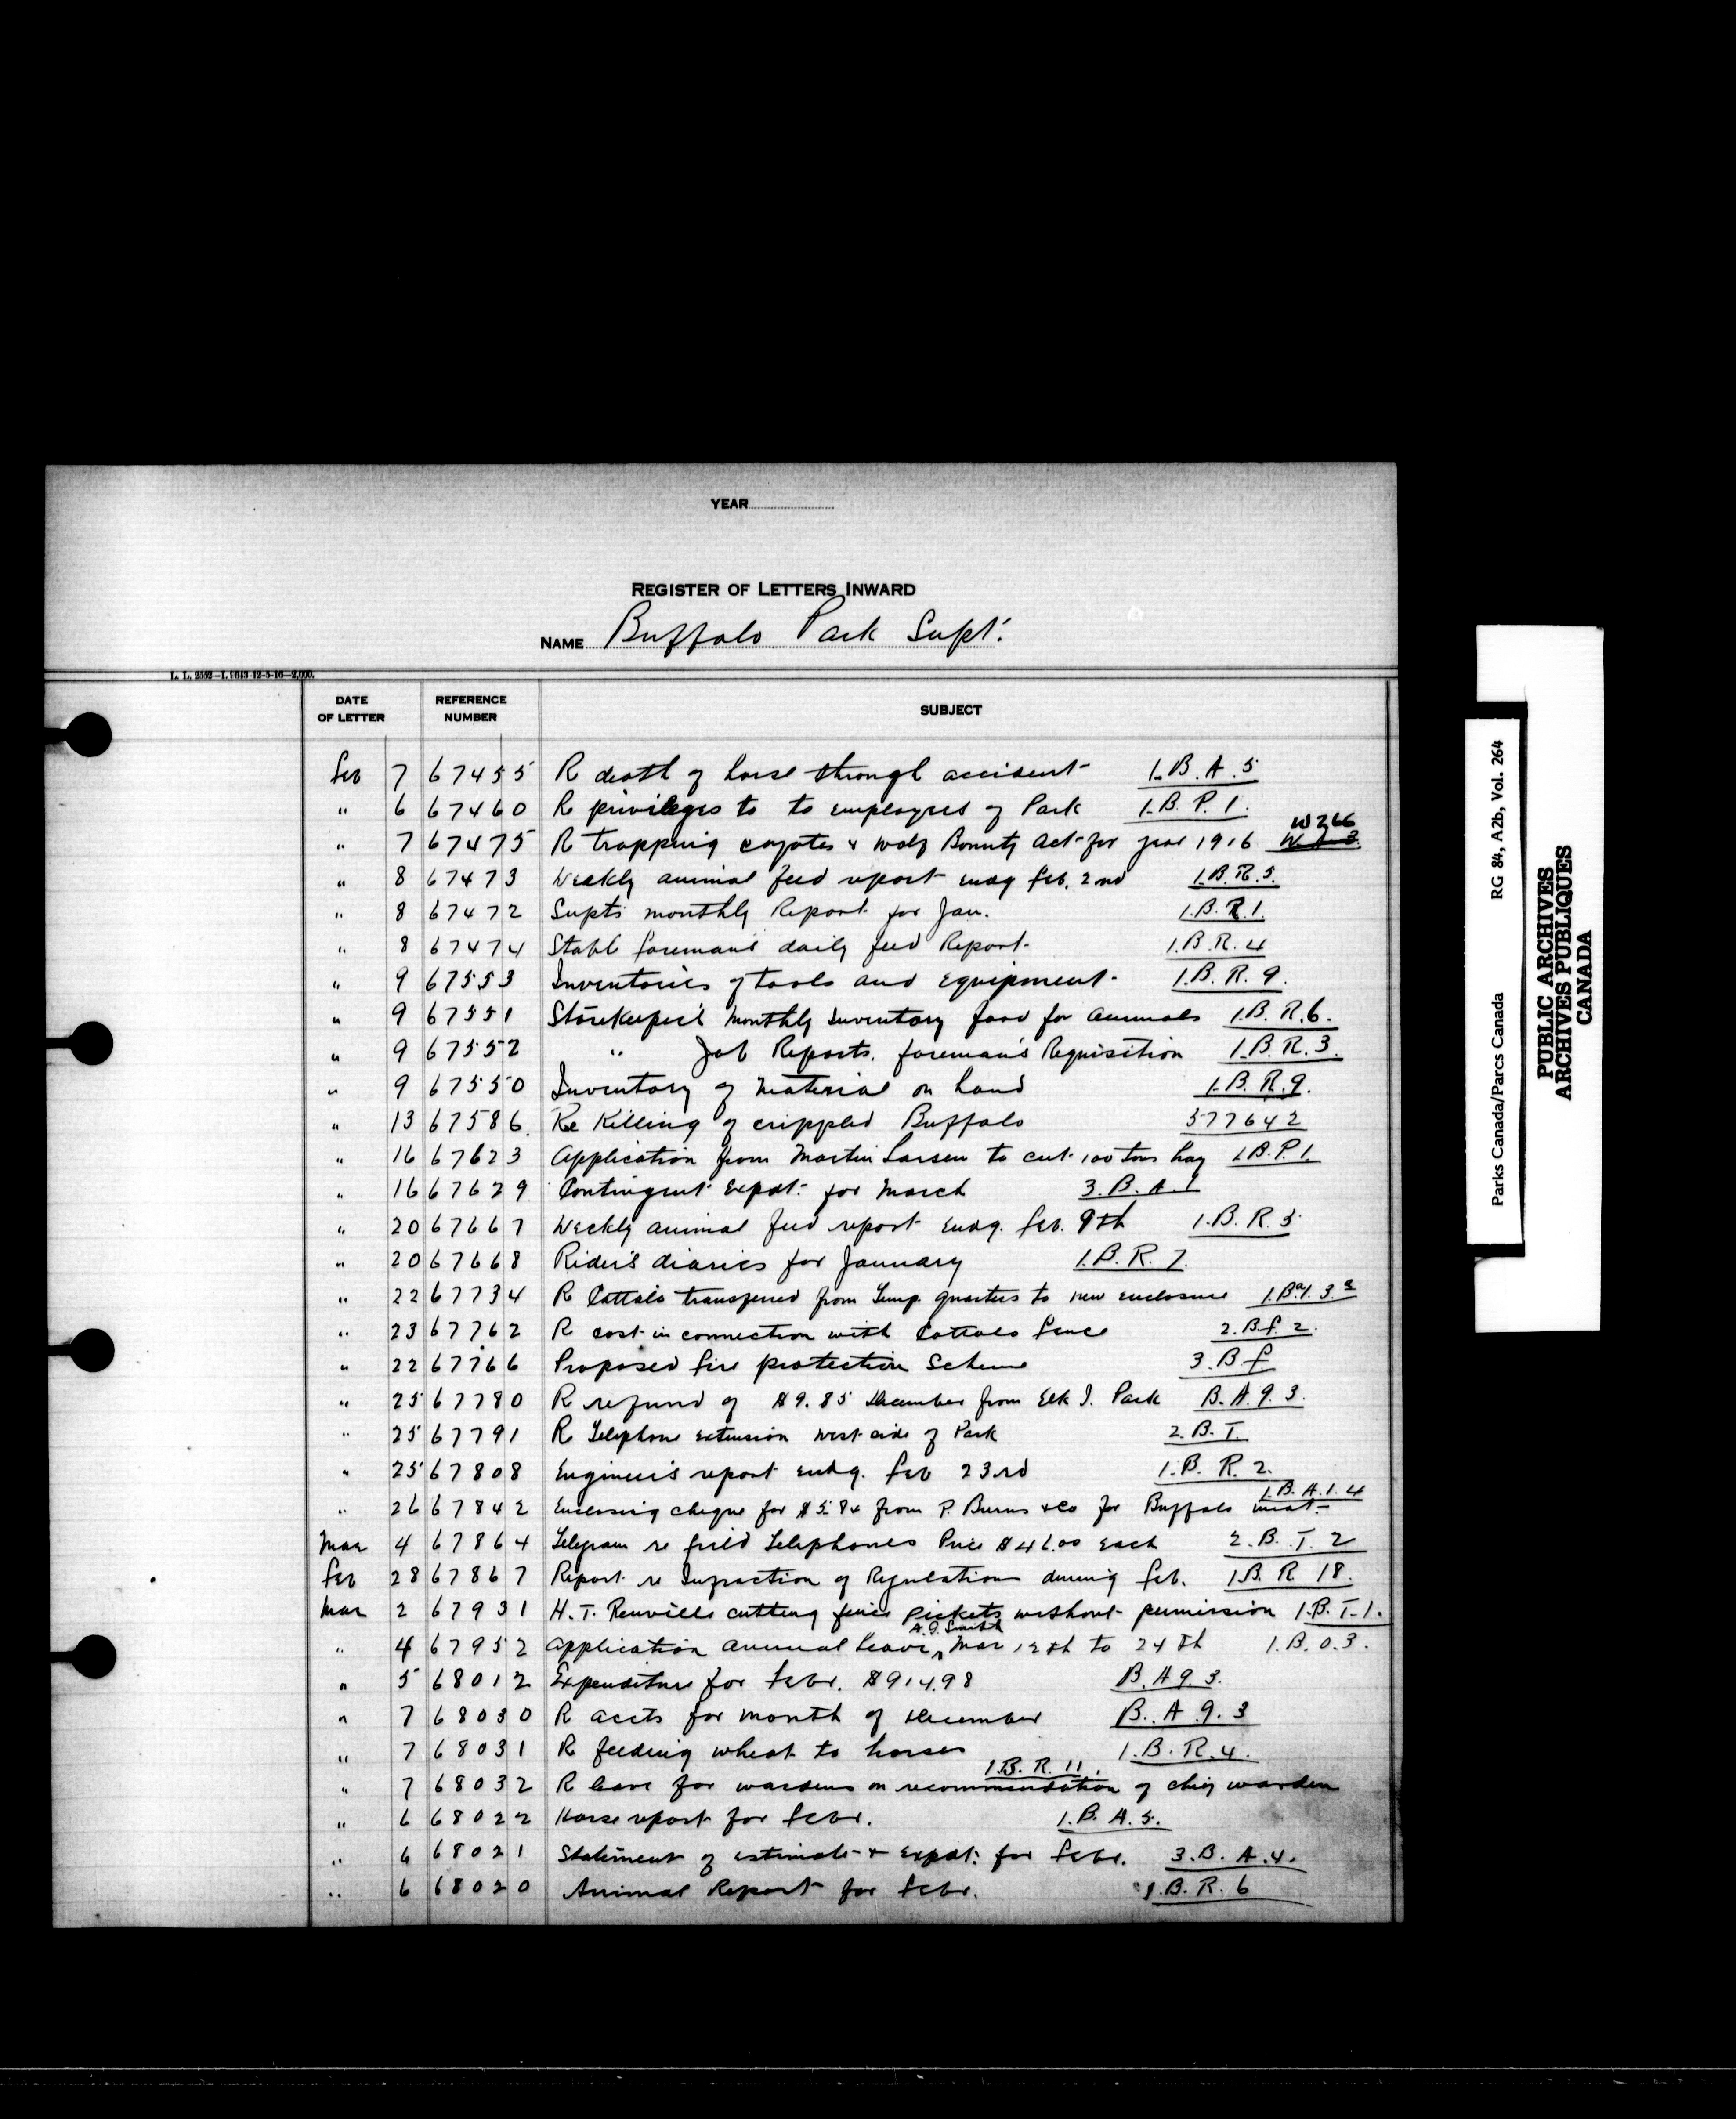 YEAR
REGISTER OF LETTERS INWARD
NAME Buffalo Park Supt.
L. L. 2552—I. 1643-12-5-16—2,000.
DATE OF LETTER REFERENCE NUMBER SUBJECT
Feb 7 67455 R death of horse through accident 1.B.A.5
" 6 67460 R privileges to to employees of Park 1.B.P.1.
" 7 67475 R trapping coyotes & wolf Bounty Act for year 1916 W266
" 8 67473 Weekly animal feed report endg Feb. 2nd 1.B.R.5.
" 8 67472 Supts monthly Report for Jan. 1.B.R.1.
" 8 67474 Stabl foreman's daily feed Report 1.B.R.4
" 9 67553 Inventories of tools and equipment 1.B.R.9.
" 9 67551 Storekeeper's monthly Inventory food for animals 1.B.R.6.
" 9 67552 " Job Reports, foreman's Requisition 1.B.R.3.
" 9 67550 Inventory of material on hand 1.B.R.9.
" 13 67586. Re Killing of crippled Buffalo 577642
" 16 67623 Application from Martin Larsen to cut 100 tons hay 1.B.P.1.
" 16 67629 Contingent Expdt. for March 3.B.A.1
" 20 67667 Weekly animal feed report endg. Feb. 9th 1.B.R.5
" 20 67668 Rider's diaries for January 1.B.R.7.
" 22 67734 R Cattalo transferred from Temp. quarters to new enclosure
" 23 67762 R cost in connection with Cattalo fence 2.B.f.2.
" 22 67766 Proposed fire protection Scheme 3.B.f
" 25 67780 R refund of $9.85 December from Elk I. Park B.A.9.3.
" 25 67791 R Telephone extension west side of Park 2.B.T.
" 25 67808 Engineer's report endg. Feb 23rd 1.B.R.2.
" 26 67842 Enclosing cheque for $5.84 from P. Burns & Co for Buffalo meat 1.B.A.1.4
Mar 4 67864 Telegram re field Telephones Price $41.00 each 2.B.T.2
Feb 28 67867 Report re Infraction of Regulations during Feb. 1.B.R 18.
Mar 2 67931 H.T. Renville cutting fence pickets without permission 1.B.T.1.
" 4 67952 Application annual leave, A.G. Smith Mar 12th to 24th 1.B.O.3.
" 5 68012 Expenditure for Febr. $914.98 B.A9.3.
" 7 68030 R accts for month of December B.A.9.3
" 7 68031 R feeding wheat to horses 1.B.R.4.
" 7 68032 R leave for wardens on recommendation of chief warden 1.B.R.11.
" 6 68022 Horse report for Febr. 1.B.A.5.
" 6 68021 Statement of estimate & expdt. for Febr. 3.B.A.4.
" 6 68020 Animal Report for Febr. 1.B.R.6
Parks Canada/Parcs Canada RG 84, A2b, Vol. 264
PUBLIC ARCHIVES
ARCHIVES PUBLIQUES
CANADA